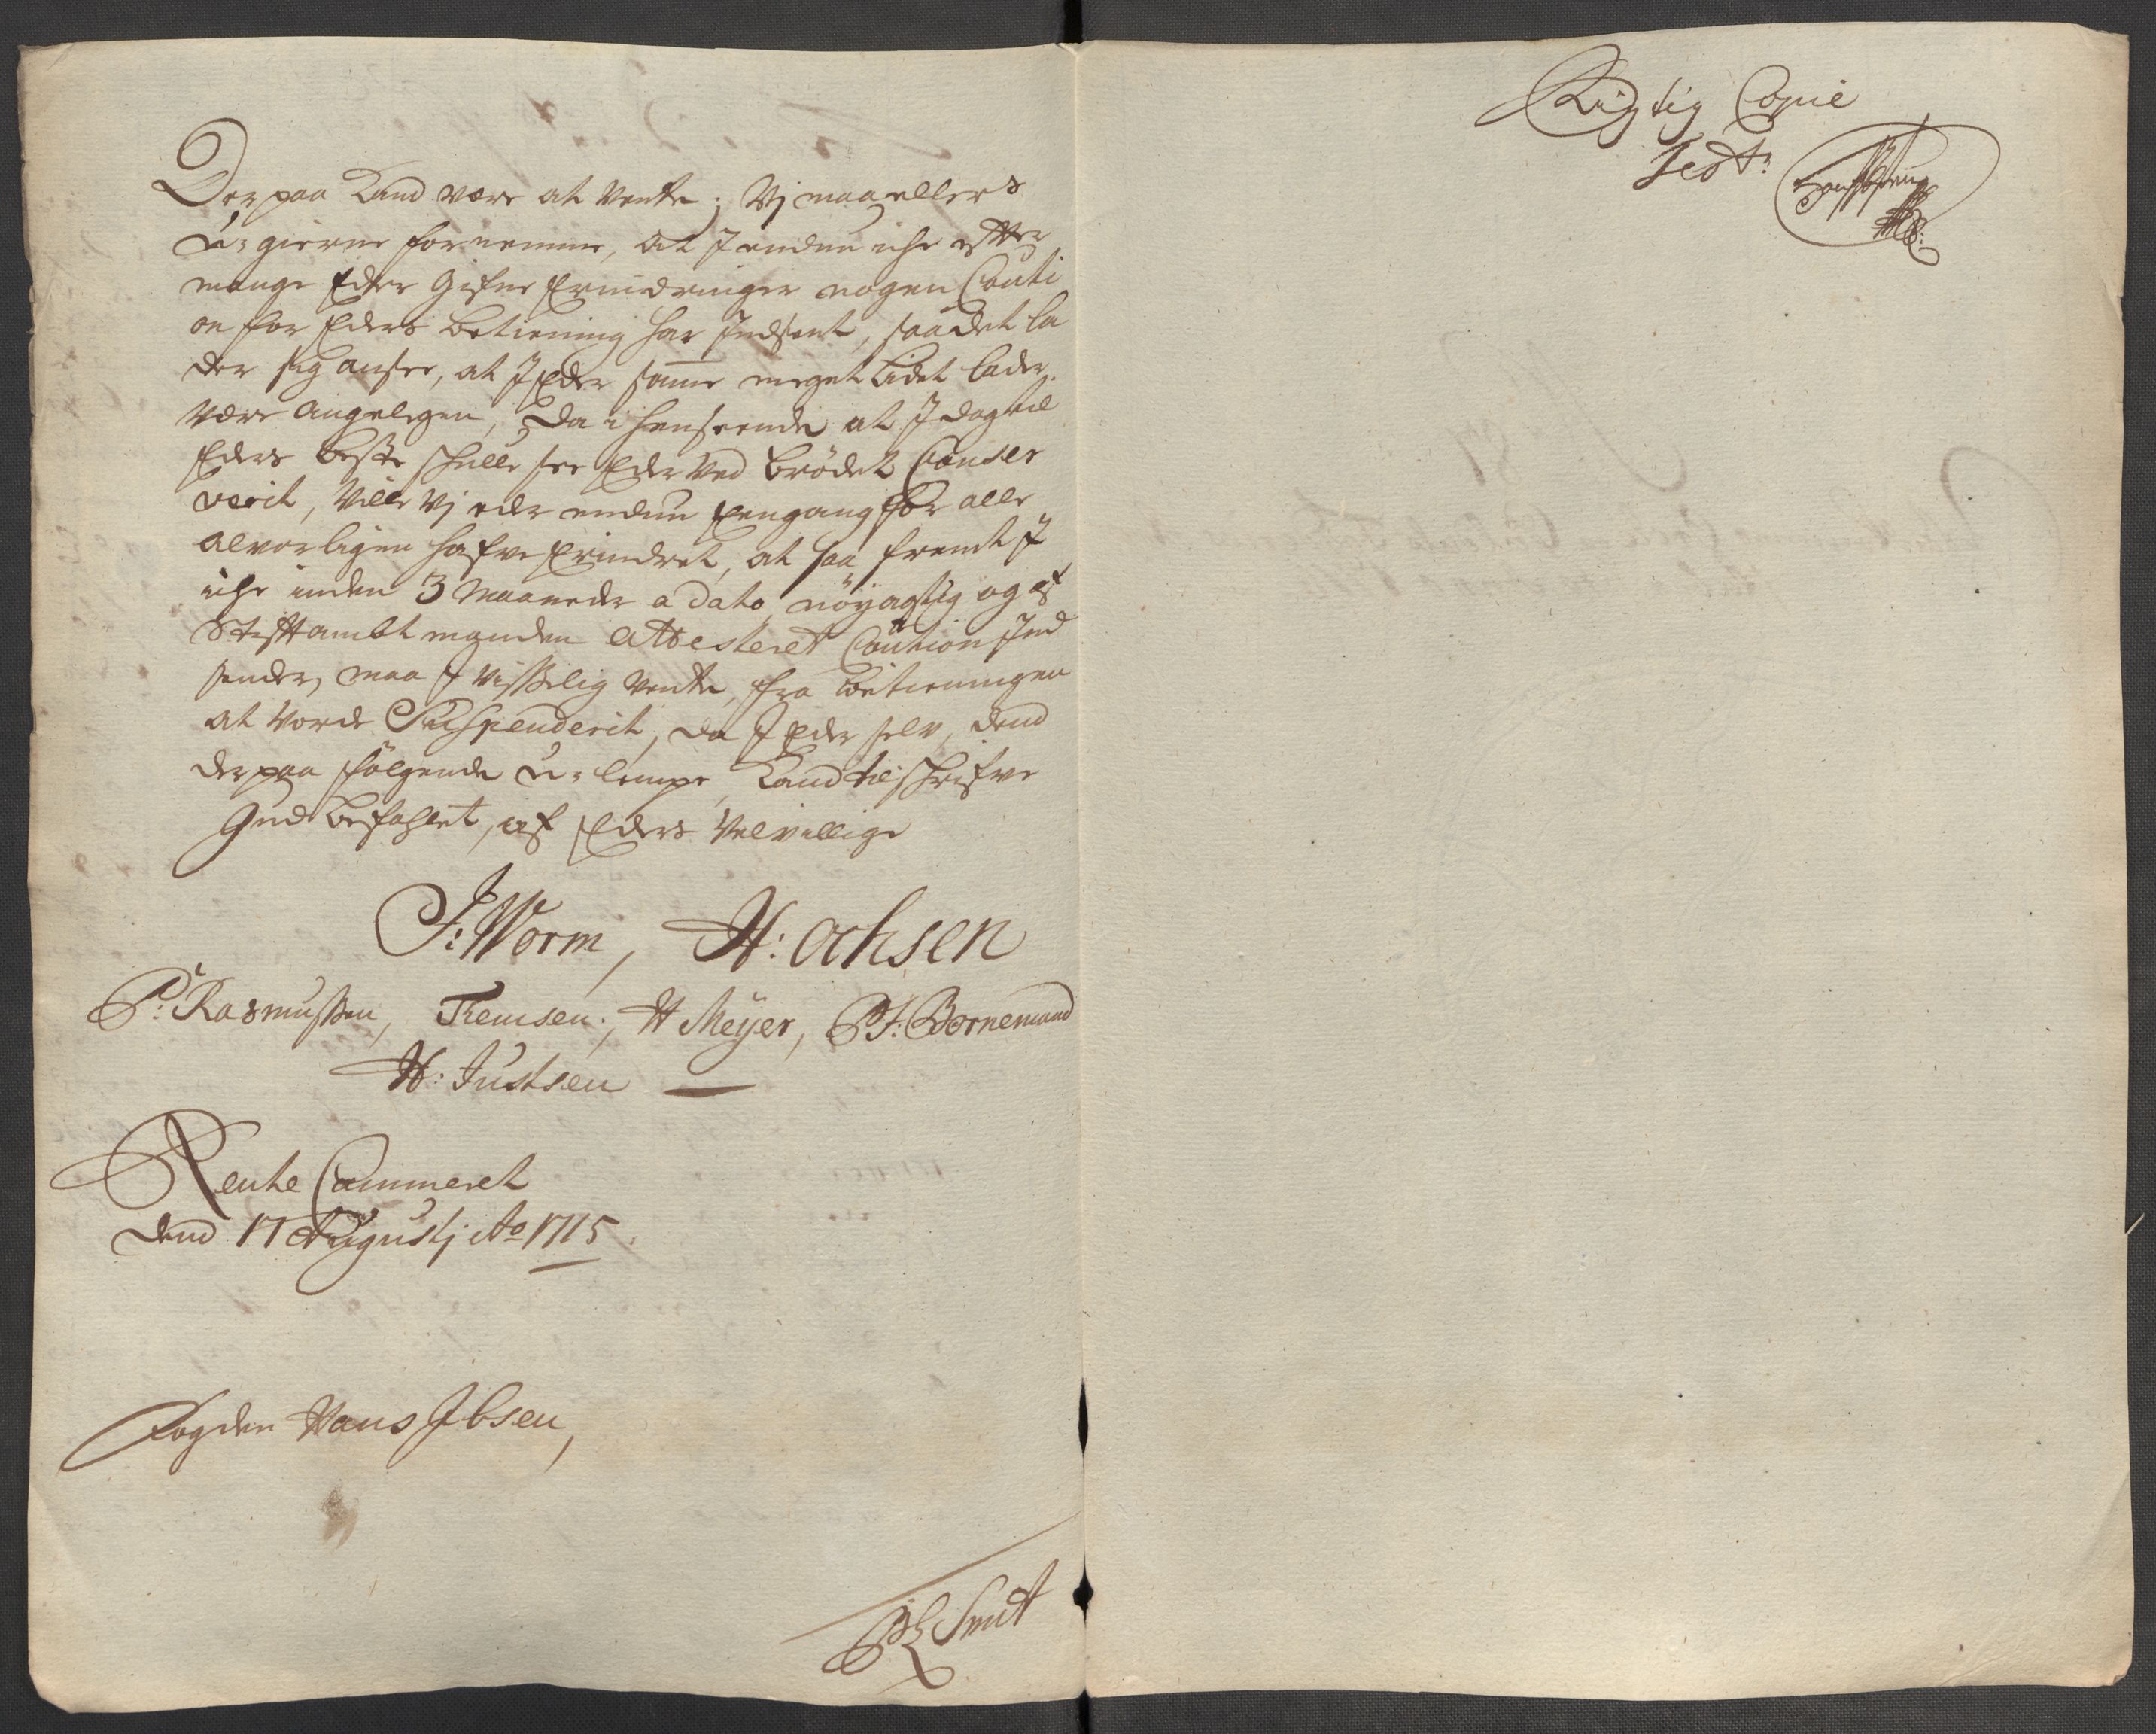 Der paa Kand være at vente; Vj maa ellers
u-gierne fornemme, at I endnu iche efter
mange Eder Gifne Erindringer nogen Cauti
on for Eders betiening har Indsent, saa det la
der sig ansee, at I Eder samme meget Lidet lader
være angelegen, Da i henseende at I dog til
Eders beste schulle see Eder ved brödet Conser
verit, Ville Vj eder endnu Eengang for alle
alvorligen hafve Erindret, at saa fremt I
iche inden 3 Maaneder a dato nöyagtig og af
Stiftamtmanden Attesteret Caution Ind
sender, maa I visselig vente, fra betieningen
at vorde Suspenderit, da I Eder selv, dend
der paa fölgende u-lempe, Kand tilschrifve
Gud befahlet, af Eders Velvillige
J: Worm, H: ochsen
P: Rasmussen, Themsen, H Meÿer, P J: Bornemand
H: Justsen
Rente Cammeret
dend 17 Augustj Ao 1715
Fogden Hans Ibsen,
Smit
Rigtig Copie
Test: